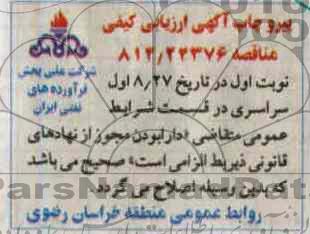 پیرو چاپ آگهی ارزیابی کیفی
مناقصه ۸۱۲٫۲۲۳۷۶
شرکت ملی پخش
فرآورده های
نفتی ایران
نوبت اول در تاریخ ۸٫۲۷ اول
سراسری در قسمت شرایط
عمومی متقاضی «دارابودن مجوز از نهادهای
قانونی ذیربط الزامی است» صحیح می باشد
که بدین وسیله اصلاح می گردد
روابط عمومی منطقه خراسان رضوی
ParsNamadData